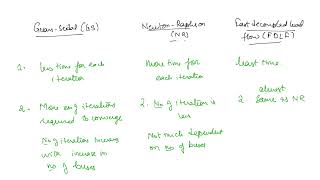 Gauss-Seidel (GS)
Newton-Raphson
(NR)
Fast decoupled load
flow (FDLF)
1. less time for each
iteration
more time for
each iteration
least time.
2. More no of iterations
required to converge
No of iteration increases
with increase in
no of buses
2. No of iteration is
less
Not much dependent
on no of buses
almost
2 same as NR